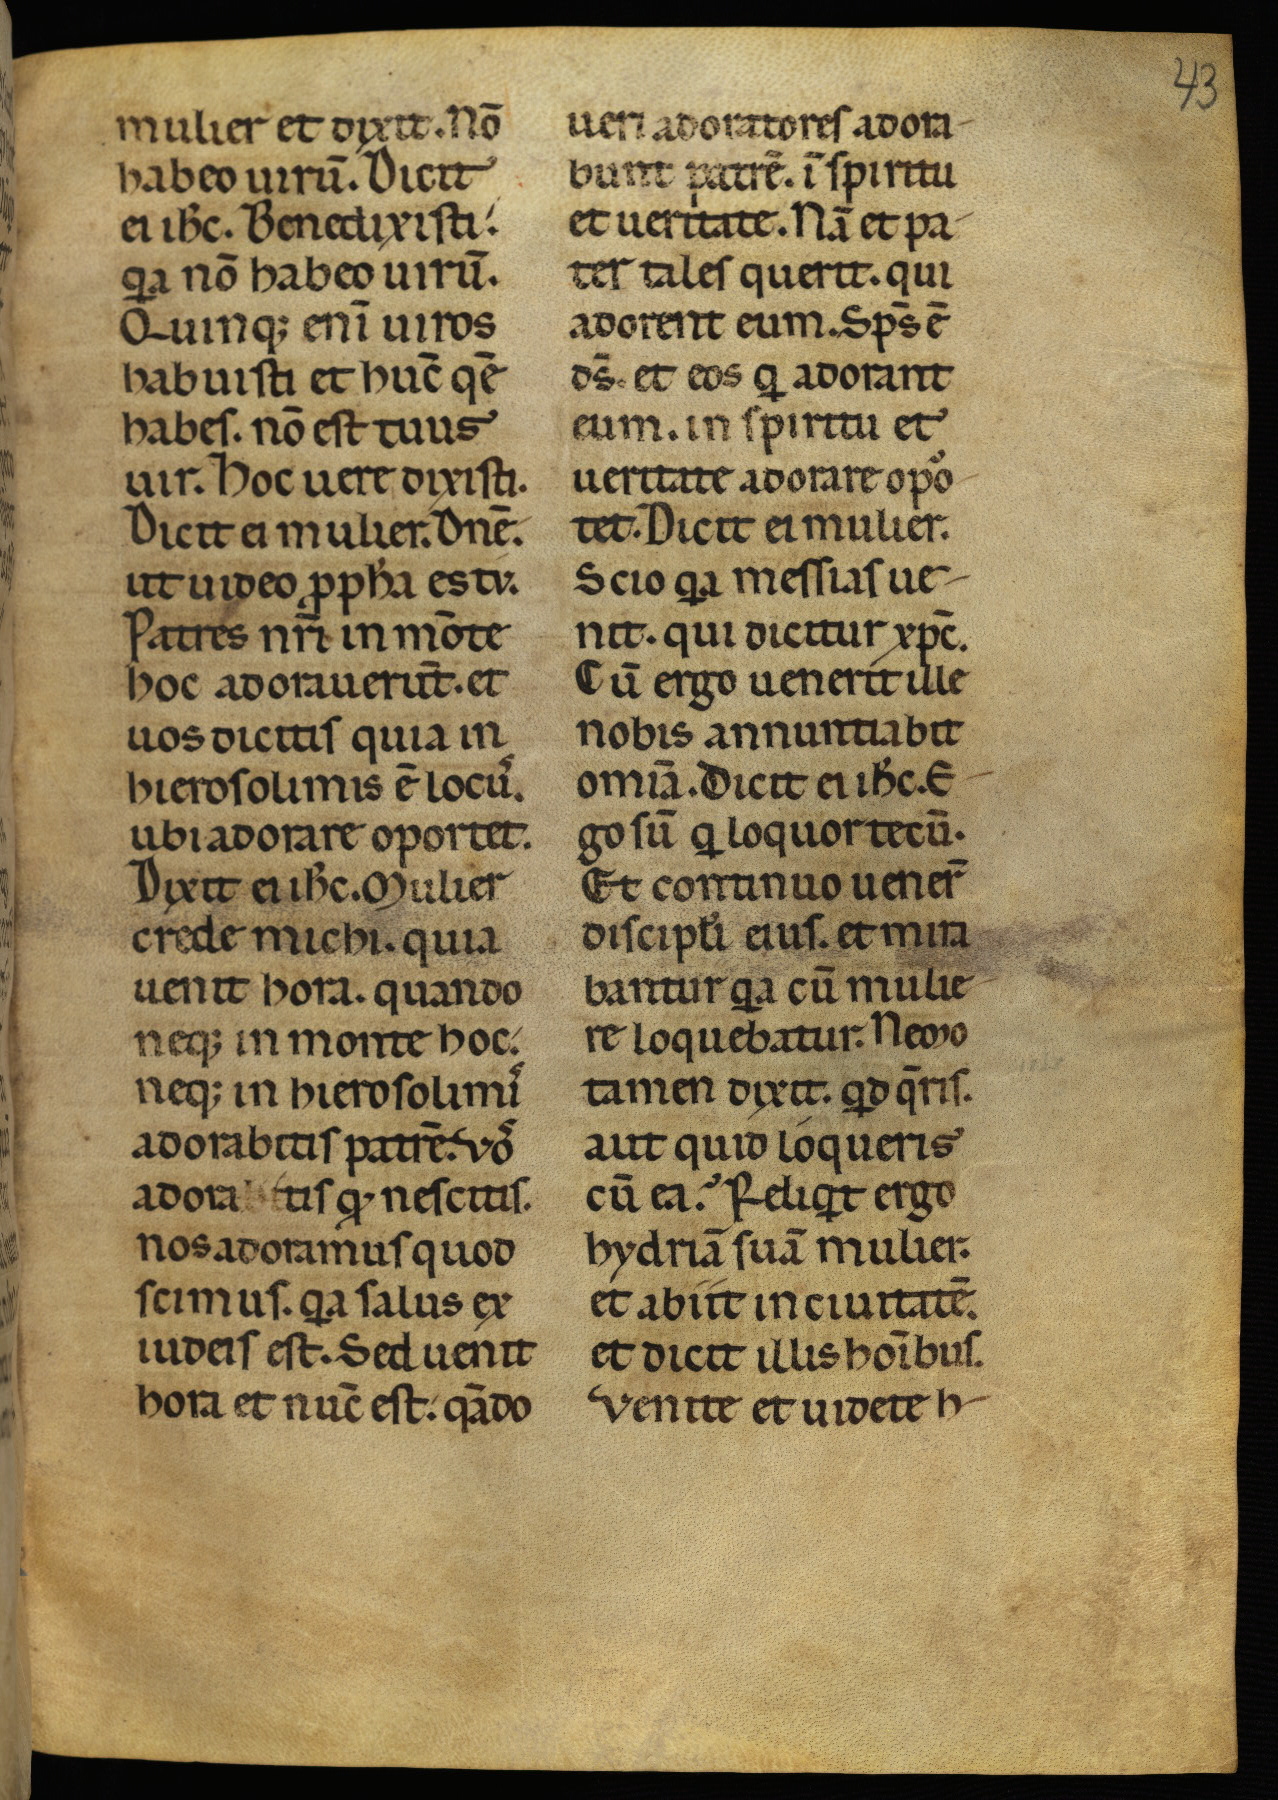 43
mulier et dixit. Nō
habeo uirū. Dicit
ei ihc̄. Benedixisti.
qa nō habeo uirū.
Quinq; enī uiros
habuisti et hūc quē
habes. nō est tuus
uir. hoc uere dixisti.
Dicit ei mulier. Dnē.
ut uideo ꝓpha es tu.
Patres nr̄i in mōte
hoc adorauerūt. et
uos dicitis quia in
hierosolimis ē locū.
ubi adorare oportet.
Dixit ei ihc̄. Mulier
crede michi. quia
uenit hora. quando
neq; in monte hoc.
neq; in hierosolimi
adorabitis patrē. vo
adorabitis qͥ nescitis.
nos adoramus quod
scimus. qa salus ex
iudeis est. Sed uenit
hora et nūc est. qādo
ueri adoratores adora-
bunt patrē. ī spiritu
et ueritate. Nā et pa-
ter tales querit. qui
adorent eum. Sps̄ ē
ds̄. et eos qi adorant
eum. in spiritu et
ueritate adorare opo
tet. Dicit ei mulier.
Scio qa messias ue-
nit. qui dicitur xpc̄.
Cū ergo uenerit ille
nobis annuntiabit
omīa. Dicit ei ihc̄. E-
go sū qi loquor tecū.
Et continuo uener̄
discipli eius. et mira
bantur qa cū mulie-
re loquebatur. Nemo
tamen dixit. qd q̄ris.
aut quid loqueris
cū ea? Reliqit ergo
hydriā suā mulier.
et abiit in ciuitatē.
et dicit illis hoībus.
Venite et uidete h-